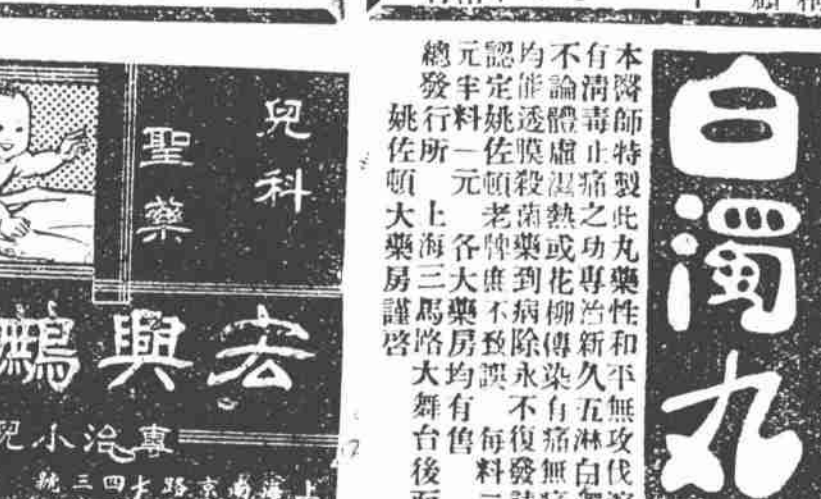 白濁丸
本醫師特製此丸藥性和平無攻伐
有清毒止痛之功專治新久五淋白濁
不論體虛濕熱或花柳傳染有痛無
均能透膜殺菌藥到病除永不復發
認定姚佐頓老牌庶不致誤 每料二
元半料一元 各大藥房均有售
總發行所 上海三馬路大舞台後面
姚佐頓大藥房謹啓
兒科
聖藥
宏興鷓
專治小兒
上海南京路七四三號